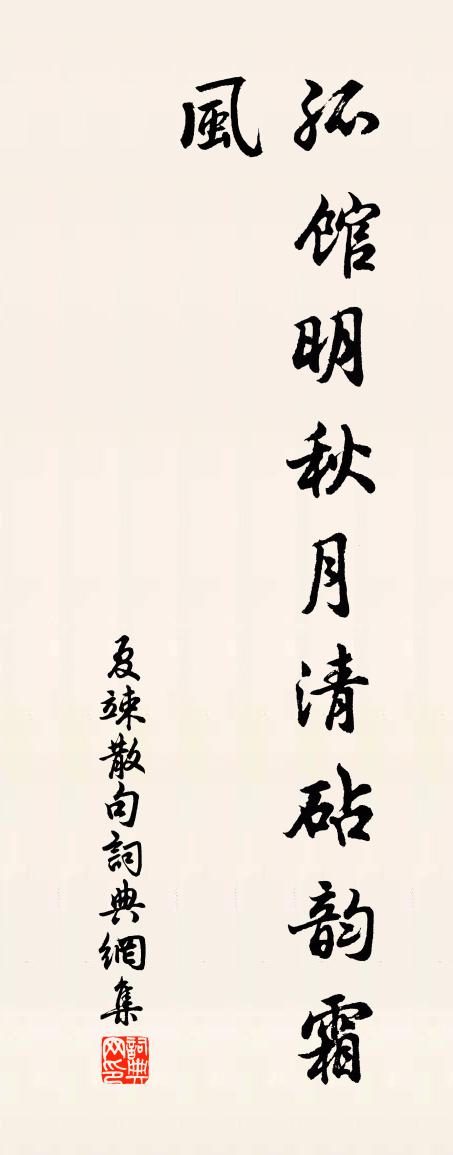 孤馆明秋月清砧韵霜
風
夏竦散句詞典網集
詞典网印